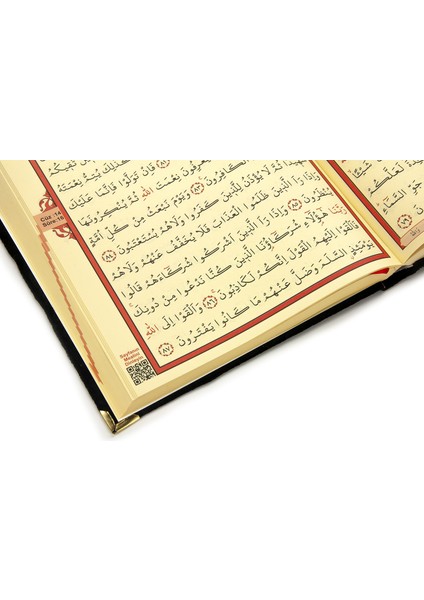 شَيْـًٔا
لَعَلَّكُمْ
جَوِّ السَّمَاءِ
﴿٧٩﴾
تَقِيكُمْ
كَذٰلِكَ يُتِمُّ نِعْمَتَهُ
﴿٨١﴾ فَاِنْ تَوَلَّوْا فَاِنَّمَا عَلَيْكَ
يَعْرِفُونَ نِعْمَتَ اللّٰهِ ثُمَّ يُنْكِرُونَهَا
الْكَافِرُونَ ﴿٨٣﴾ وَيَوْمَ نَبْعَثُ مِنْ كُلِّ اُمَّةٍ
شَهِيدًا ثُمَّ لَا يُؤْذَنُ لِلَّذِينَ كَفَرُوا وَلَا هُمْ يُسْتَعْتَبُونَ ﴿٨٤﴾
وَاِذَا رَاَ الَّذِينَ ظَلَمُوا الْعَذَابَ فَلَا يُخَفَّفُ عَنْهُمْ وَلَا هُمْ
يُنْظَرُونَ ﴿٨٥﴾ وَاِذَا رَاَ الَّذِينَ اَشْرَكُوا شُرَكَاءَهُمْ قَالُوا
رَبَّنَا هٰؤُلَاءِ شُرَكَاؤُنَا الَّذِينَ كُنَّا نَدْعُوا مِنْ دُونِكَ
فَاَلْقَوْا اِلَيْهِمُ الْقَوْلَ اِنَّكُمْ لَكَاذِبُونَ ﴿٨٦﴾ وَاَلْقَوْا اِلَى اللّٰهِ
يَوْمَئِذٍ السَّلَمَ وَضَلَّ عَنْهُمْ مَا كَانُوا يَفْتَرُونَ ﴿٨٧﴾
Cüz :14
Sûre:16
Sayfanın
Mealini
Dinleyin